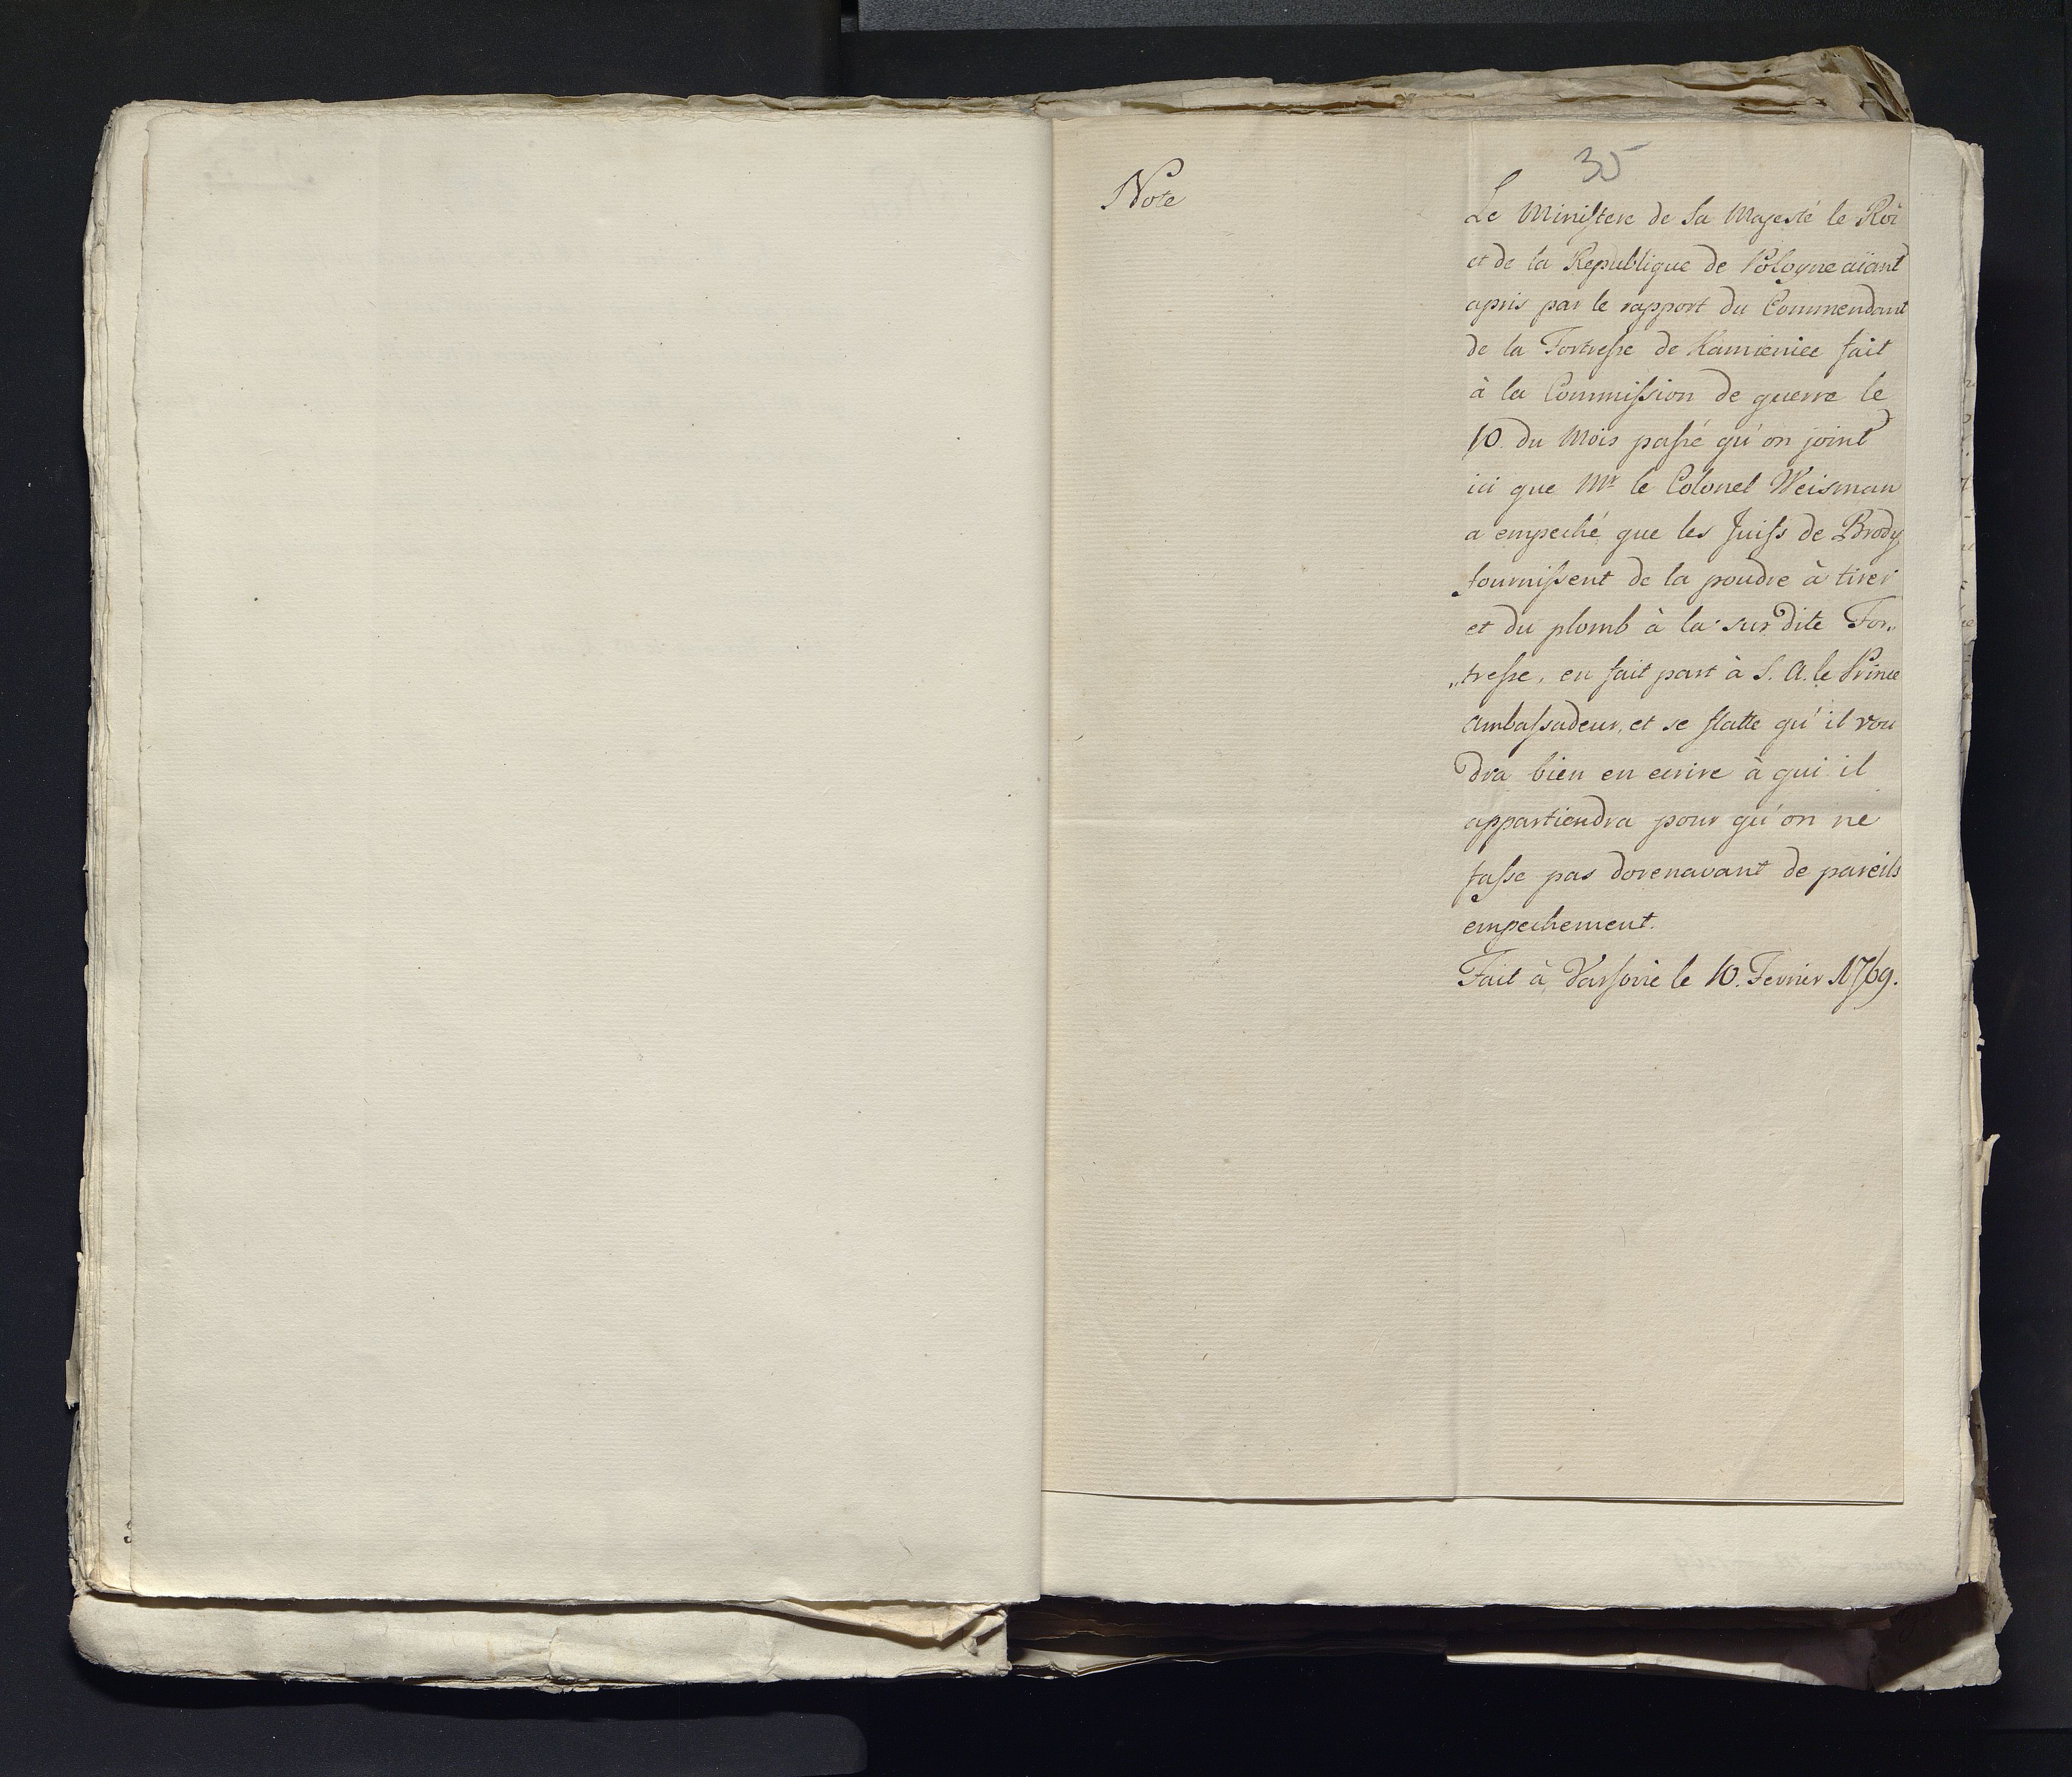 35
Note
Le Ministere de Sa Majesté le Roi
et de la Republique de Pologne aïant
apris par le rapport du Commendant
de la Fortresse de Kamieniec fait
à la Commission de guerre le
10. du Mois passé qu'on joint
ici que Mr le Colonel Weisman
a empeché que les Juifs de Brody
fournissent de la poudre à tirer
et du plomb à la sus dite For„
„tresse, en fait part à S. A. le Prince
Ambassadeur, et se flatte qu'il vou
dra bien en ecrire à qui il
appartiendra pour qu'on ne
fasse pas dorenavant de pareils
empechement.
Fait à Varsovie le 10. Fevrier 1769.